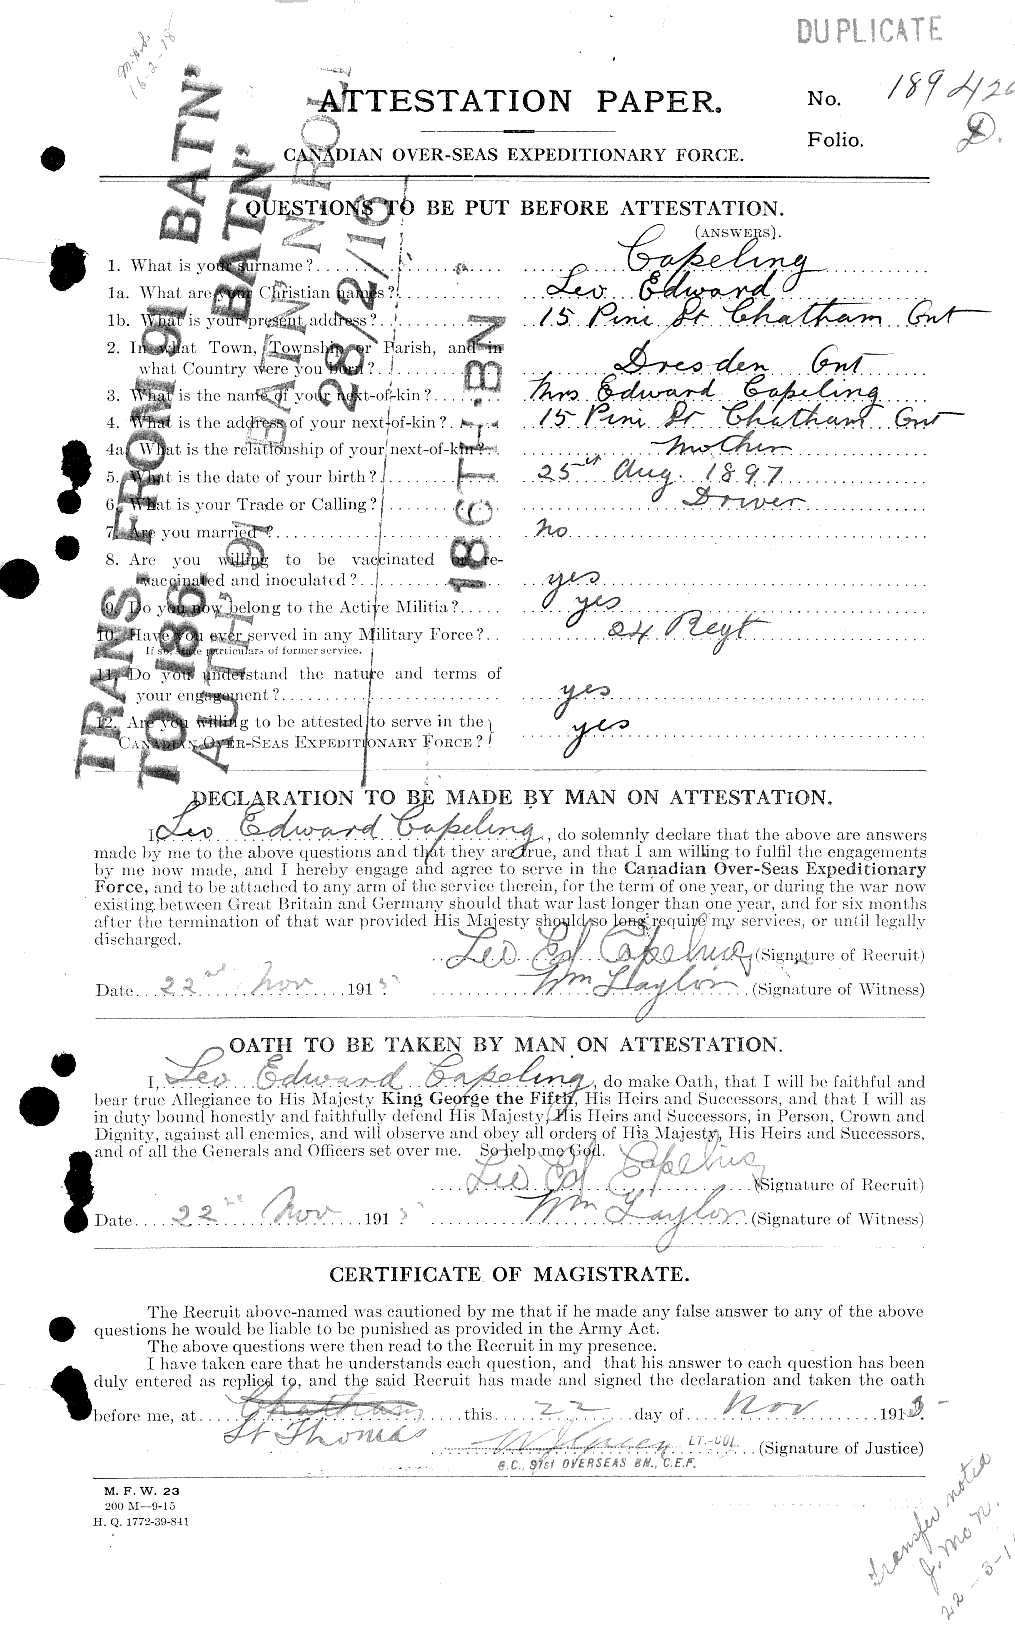 DUPLICATE
16-2-18
ATTESTATION PAPER.
No. 189426
Folio. D.
CANADIAN OVER-SEAS EXPEDITIONARY FORCE.
TRANS. FROM 91 BATN'
TO 186 BATN'
AUTH. 91 BATN ROLL
28/2/16
186TH-BN
QUESTIONS TO BE PUT BEFORE ATTESTATION.
(ANSWERS).
1. What is your surname? Capeling
1a. What are your Christian names? Leo Edward
1b. What is your present address? 15 Pine St Chatham Ont
2. In what Town, Township or Parish, and in
what Country were you born? Dresden Ont
3. What is the name of your next-of-kin? Mrs Edward Capeling
4. What is the address of your next-of-kin? 15 Pine St Chatham Ont
4a. What is the relationship of your next-of-kin? Mother
5. What is the date of your birth? 25th Aug. 1897
6. What is your Trade or Calling? Driver
7. Are you married? No
8. Are you willing to be vaccinated or re-
vaccinated and inoculated? yes
9. Do you now belong to the Active Militia? yes
10. Have you ever served in any Military Force? 24 Regt
If so, state particulars of former service.
11. Do you understand the nature and terms of
your engagement? yes
12. Are you willing to be attested to serve in the
CANADIAN OVER-SEAS EXPEDITIONARY FORCE? yes
DECLARATION TO BE MADE BY MAN ON ATTESTATION.
I, Leo Edward Capeling, do solemnly declare that the above are answers
made by me to the above questions and that they are true, and that I am willing to fulfil the engagements
by me now made, and I hereby engage and agree to serve in the Canadian Over-Seas Expeditionary
Force, and to be attached to any arm of the service therein, for the term of one year, or during the war now
existing between Great Britain and Germany should that war last longer than one year, and for six months
after the termination of that war provided His Majesty should so long require my services, or until legally
discharged.
Leo Ed Capeling (Signature of Recruit)
Date 22nd Nov 1915 Wm Taylor (Signature of Witness)
OATH TO BE TAKEN BY MAN ON ATTESTATION.
I, Leo Edward Capeling, do make Oath, that I will be faithful and
bear true Allegiance to His Majesty King George the Fifth, His Heirs and Successors, and that I will as
in duty bound honestly and faithfully defend His Majesty, His Heirs and Successors, in Person, Crown and
Dignity, against all enemies, and will observe and obey all orders of His Majesty, His Heirs and Successors,
and of all the Generals and Officers set over me. So help me God.
Leo Ed Capeling (Signature of Recruit)
Date 22nd Nov 1915 Wm Taylor (Signature of Witness)
CERTIFICATE OF MAGISTRATE.
The Recruit above-named was cautioned by me that if he made any false answer to any of the above
questions he would be liable to be punished as provided in the Army Act.
The above questions were then read to the Recruit in my presence.
I have taken care that he understands each question, and that his answer to each question has been
duly entered as replied to, and the said Recruit has made and signed the declaration and taken the oath
before me, at Chatham this 22 day of Nov 1915
St Thomas
W J Green LT-COL (Signature of Justice)
O.C., 91st OVERSEAS BN., C.E.F.
M. F. W. 23
200 M—9-15
H. Q. 1772-39-841
Transfer noted
22-3-1